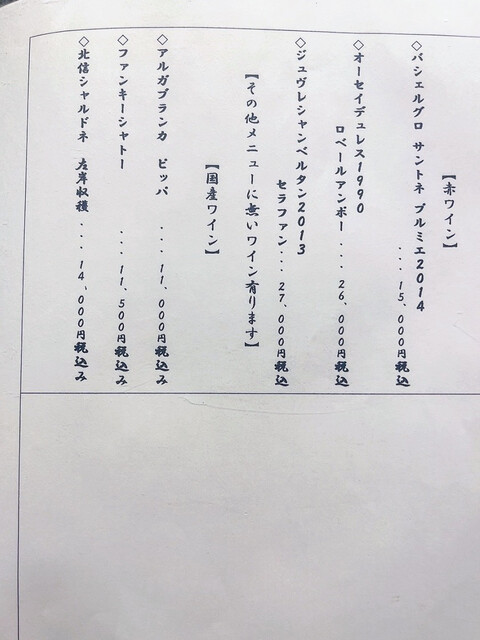 【赤ワイン】
◇バシェルグロ サントネ プルミエ2014
...15、000円税込
◇オーセイデュレス1990
ロベールアンポー...26、000円税込
◇ジュヴレシャンベルタン2013
セラファン...27、000円税込
【その他メニューに無いワイン有ります】
【国産ワイン】
◇アルガブランカ ピッパ ...11、000円税込み
◇ファンキーシャトー ...11、500円税込み
◇北信シャルドネ 左岸収穫 ...14、000円税込み